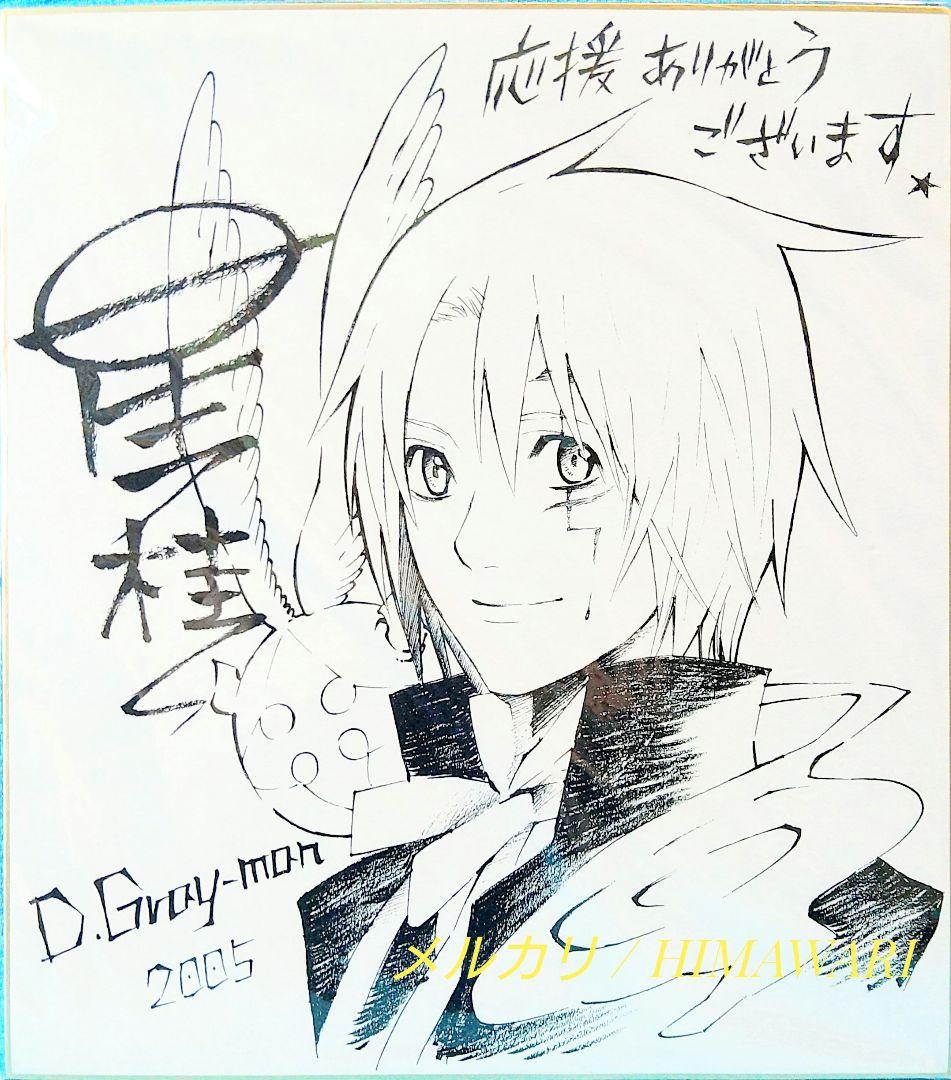 応援ありがとう
ございます★
星野
桂
D.Gray-man
2005
メルカリ / HIMAWARI